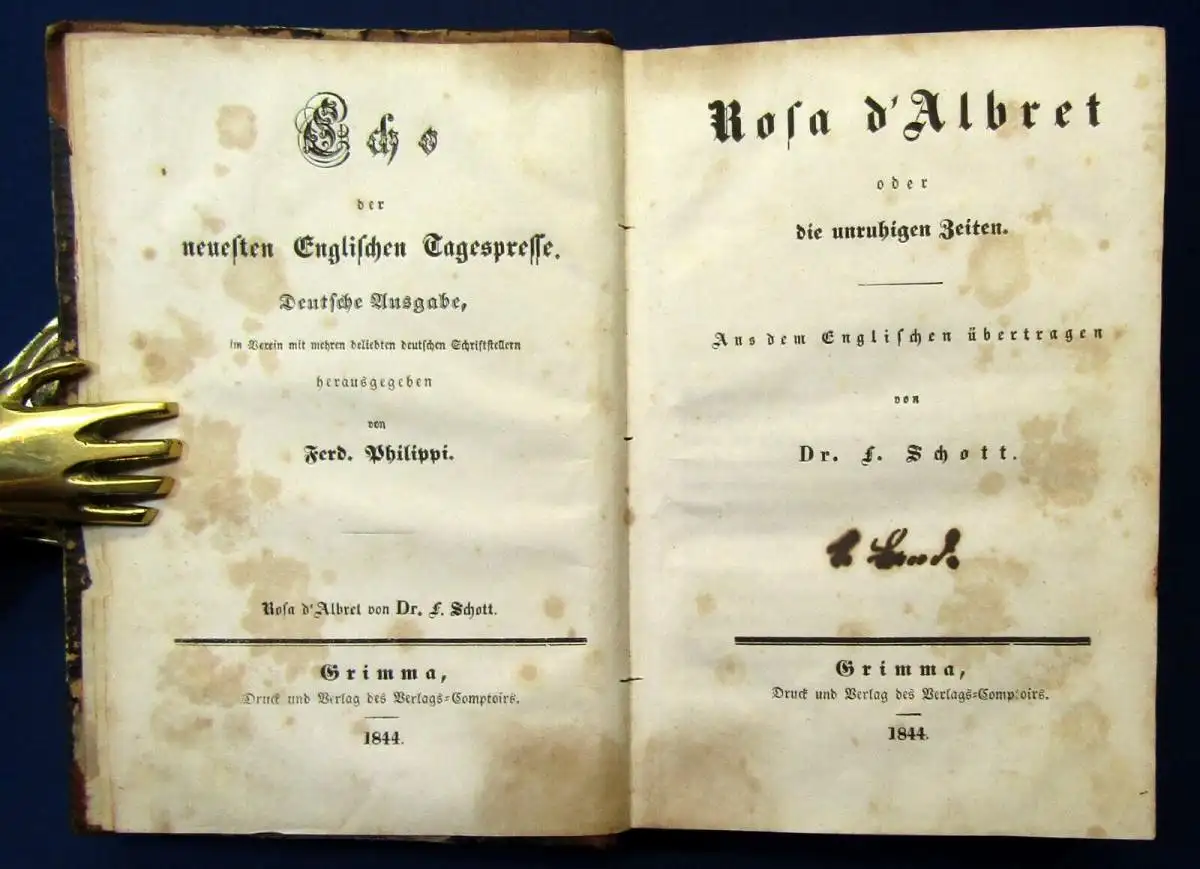 Echo
der
neuesten Englischen Tagespresse.
Deutsche Ausgabe,
im Verein mit mehren beliebten deutschen Schriftstellern
herausgegeben
von
Ferd. Philippi.
Rosa d'Albret von Dr. F. Schott.
Grimma,
Druck und Verlag des Verlags-Comptoirs.
1844.
Rosa d'Albret
oder
die unruhigen Zeiten.
Aus dem Englischen übertragen
von
Dr. F. Schott.
Band.
Grimma,
Druck und Verlag des Verlags-Comptoirs.
1844.